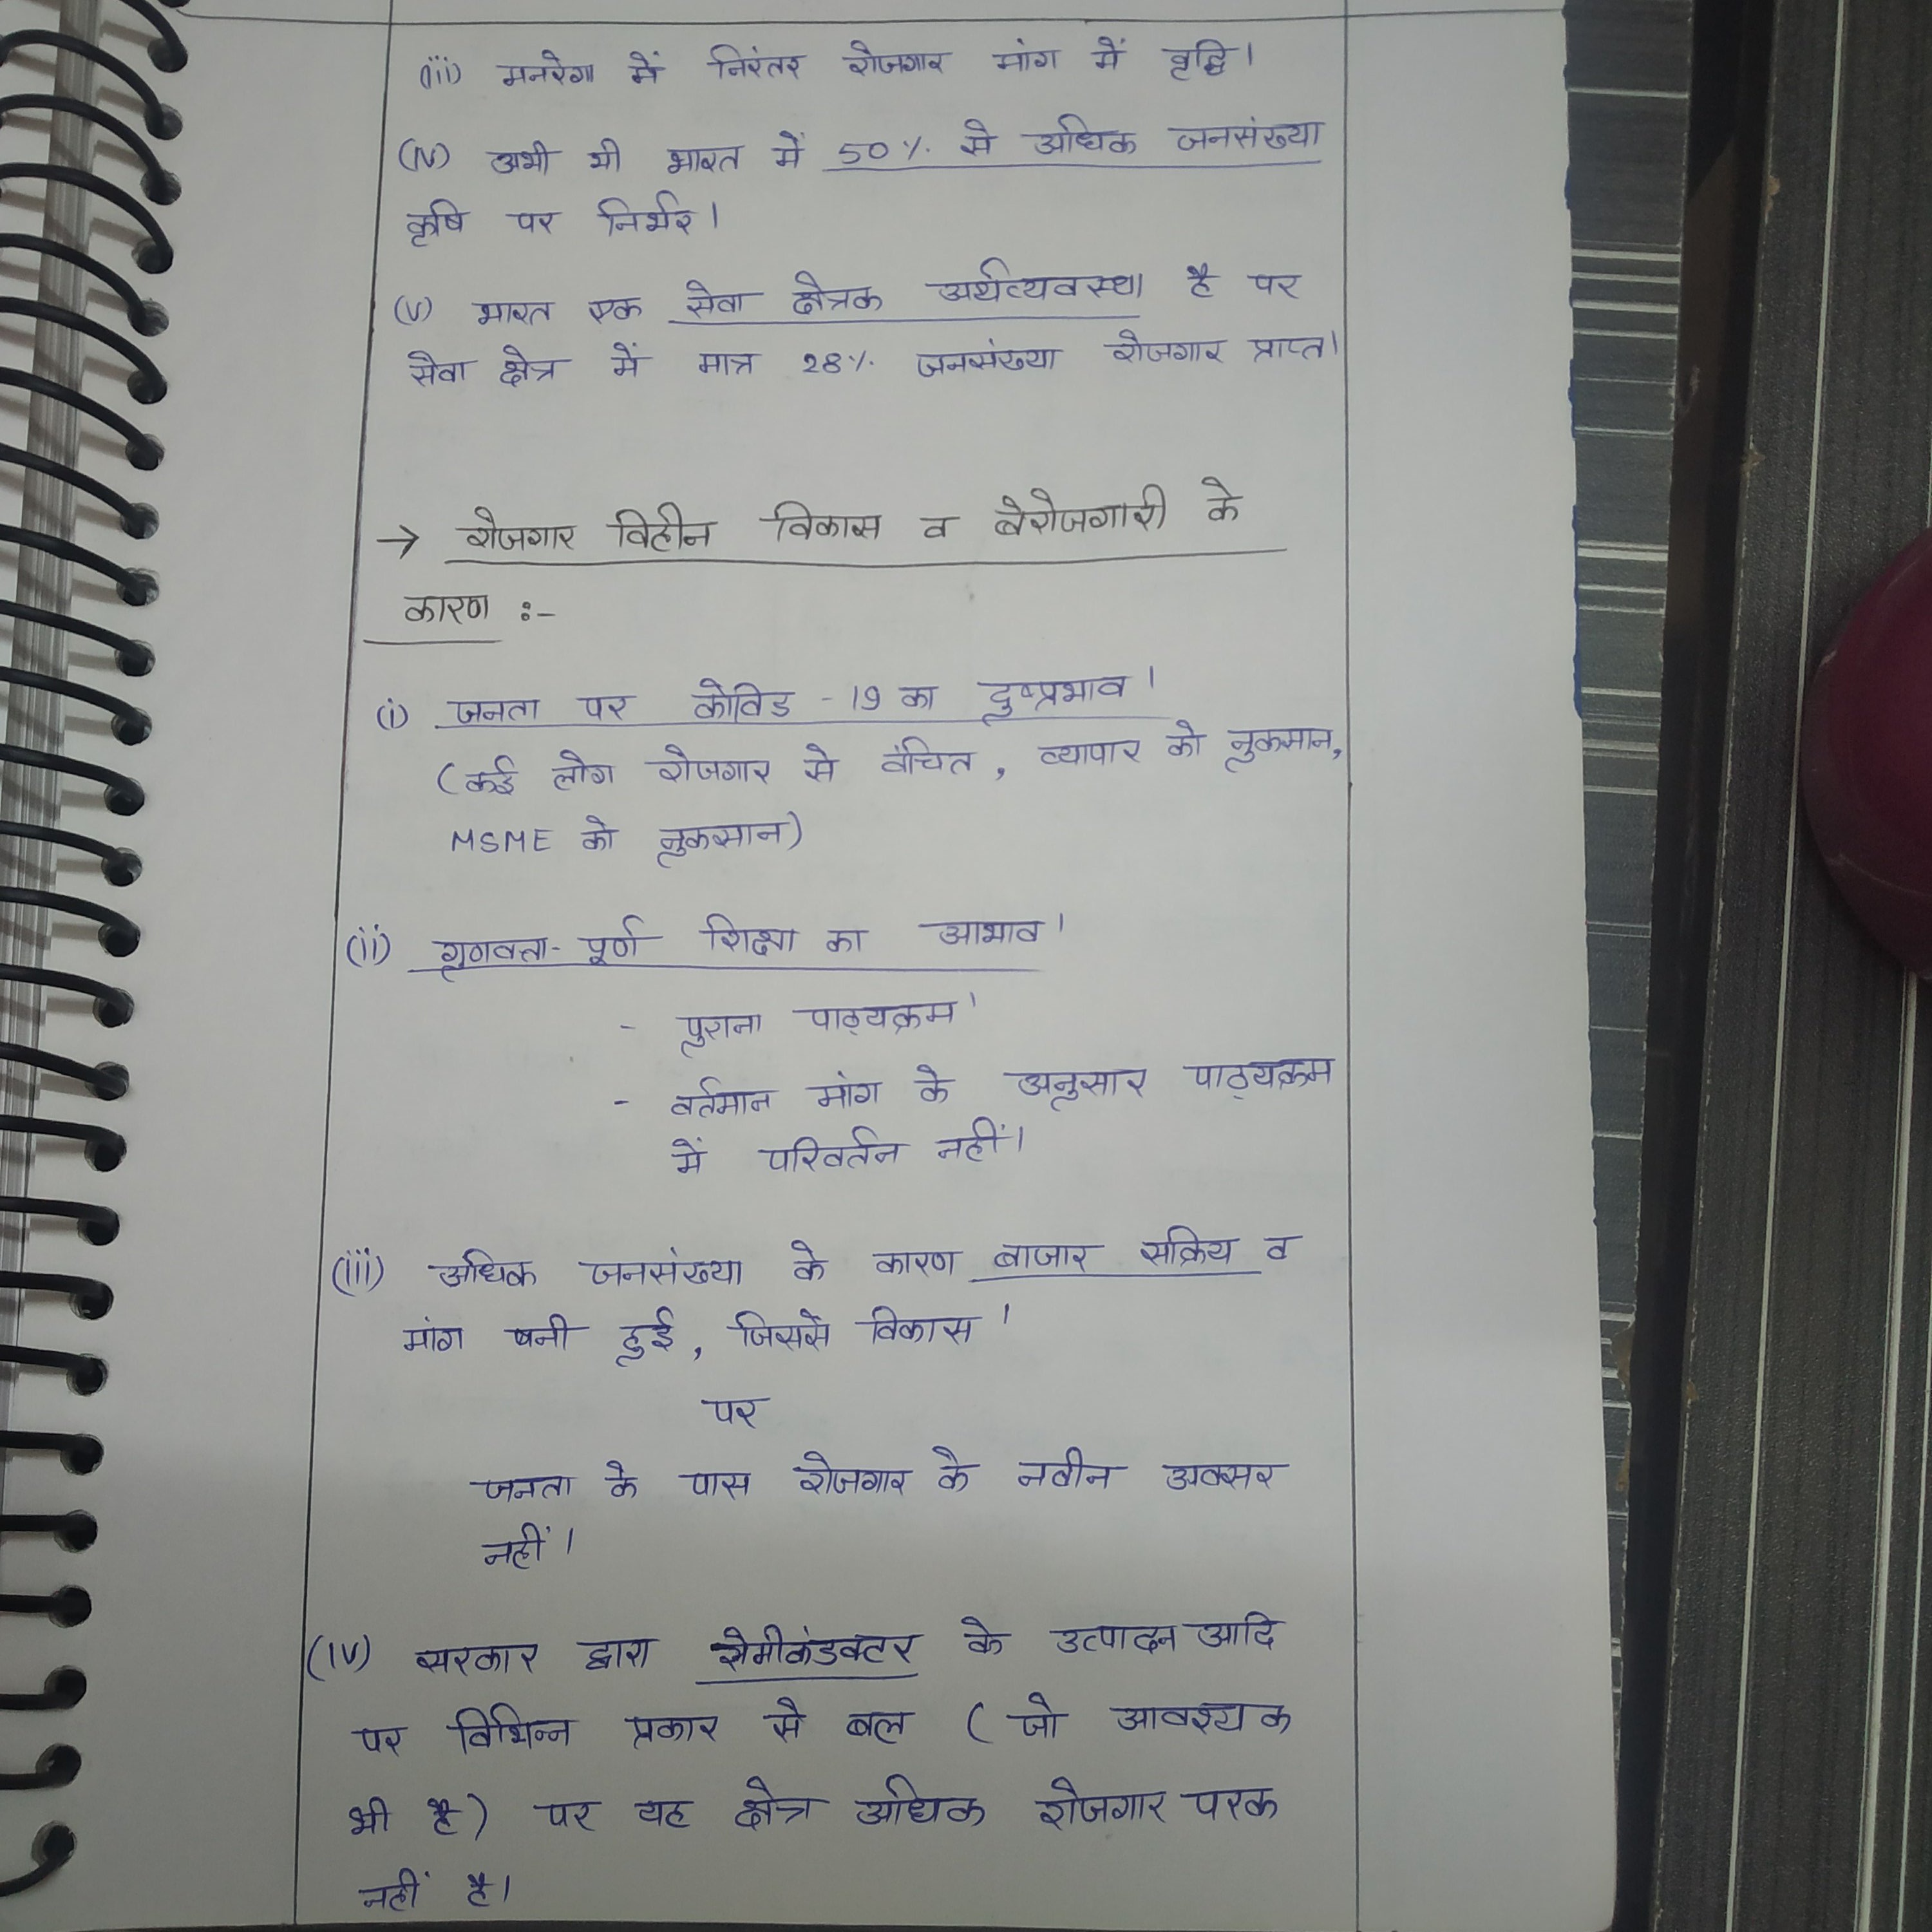 (iii) मनरेगा में निरंतर रोजगार मांग में वृद्धि।
(iv) अभी भी भारत में 50% से अधिक जनसंख्या
कृषि पर निर्भर।
(v) भारत एक सेवा क्षेत्रक अर्थव्यवस्था है पर
सेवा क्षेत्र में मात्र 28% जनसंख्या रोजगार प्राप्त।
→ रोजगार विहीन विकास व बेरोजगारी के
कारण :-
(i) जनता पर कोविड - 19 का दुष्प्रभाव।
(कई लोग रोजगार से वंचित, व्यापार को नुकसान,
MSME को नुकसान)
(ii) गुणवत्ता-पूर्ण शिक्षा का आभाव।
- पुराना पाठ्यक्रम।
- वर्तमान मांग के अनुसार पाठ्यक्रम
में परिवर्तन नहीं।
(iii) अधिक जनसंख्या के कारण बाजार सक्रिय व
मांग बनी हुई, जिससे विकास।
पर
जनता के पास रोजगार के नवीन अवसर
नहीं।
(iv) सरकार द्वारा सेमीकंडक्टर के उत्पादन आदि
पर विभिन्न प्रकार से बल (जो आवश्यक
भी है) पर यह क्षेत्र अधिक रोजगार परक
नहीं है।